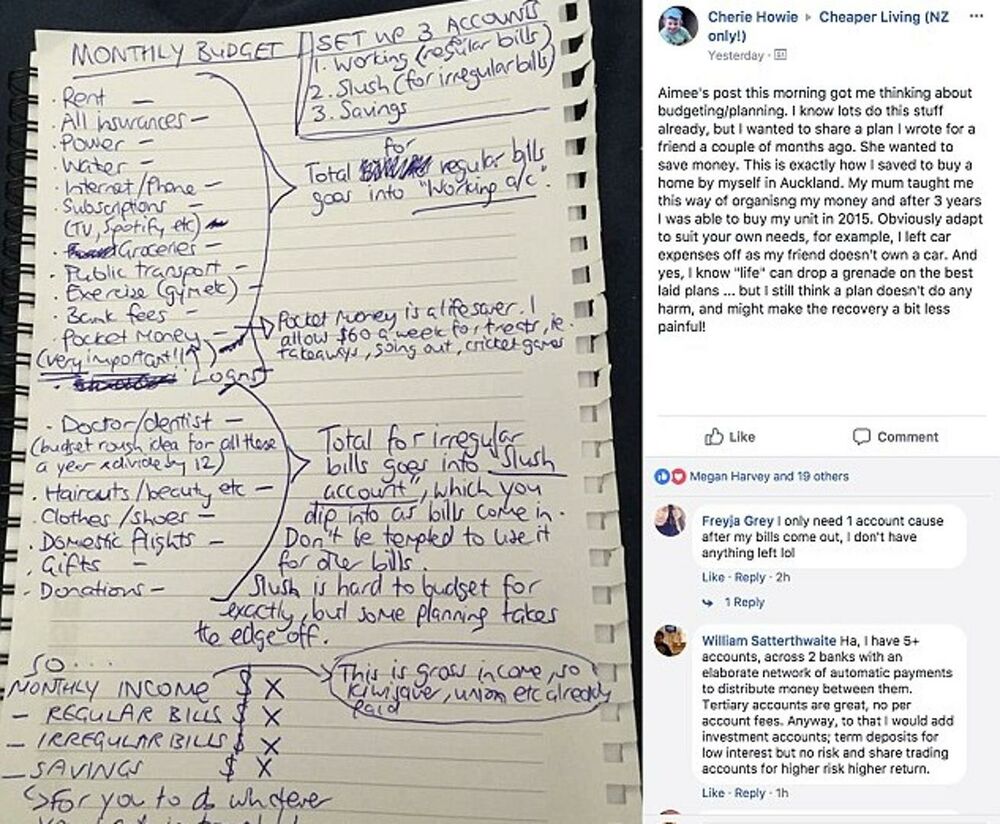 MONTHLY BUDGET
SET UP 3 ACCOUNTS
1. Working (regular bills)
2. Slush (for irregular bills)
3. Savings
· Rent —
· All Insurances —
· Power —
· Water —
· Internet/Phone —
· Subscriptions —
(TV, Spotify etc) —
· Groceries —
· Public transport —
· Exercise (gym etc) —
· Bank fees —
· Pocket Money —
(very important!!)
· Loans
for
Total regular bills
goes into "Working a/c".
Pocket Money is a lifesaver. I
allow $60 a week for treats, ie.
takeaways, going out, cricket games
· Doctor/dentist —
(budget rough idea for all these
a year & divide by 12)
· Haircuts/beauty etc —
· Clothes/shoes —
· Domestic flights —
· Gifts —
· Donations —
Total for irregular
bills goes into "Slush
account", which you
dip into as bills come in.
Don't be tempted to use it
for other bills.
Slush is hard to budget for
exactly, but some planning takes
the edge off.
SO....
MONTHLY INCOME $ X
— REGULAR BILLS $ X
— IRREGULAR BILLS $ X
— SAVINGS $ X
This is gross income, so
Kiwisaver, union etc already
paid
For you to do whatever
Cherie Howie ▸ Cheaper Living (NZ
only!)
Yesterday ·
Aimee's post this morning got me thinking about
budgeting/planning. I know lots do this stuff
already, but I wanted to share a plan I wrote for a
friend a couple of months ago. She wanted to
save money. This is exactly how I saved to buy a
home by myself in Auckland. My mum taught me
this way of organisng my money and after 3 years
I was able to buy my unit in 2015. Obviously adapt
to suit your own needs, for example, I left car
expenses off as my friend doesn't own a car. And
yes, I know "life" can drop a grenade on the best
laid plans ... but I still think a plan doesn't do any
harm, and might make the recovery a bit less
painful!
Like
Comment
Megan Harvey and 19 others
Freyja Grey I only need 1 account cause
after my bills come out, I don't have
anything left lol
Like · Reply · 2h
1 Reply
William Satterthwaite Ha, I have 5+
accounts, across 2 banks with an
elaborate network of automatic payments
to distribute money between them.
Tertiary accounts are great, no per
account fees. Anyway, to that I would add
investment accounts; term deposits for
low interest but no risk and share trading
accounts for higher risk higher return.
Like · Reply · 1h